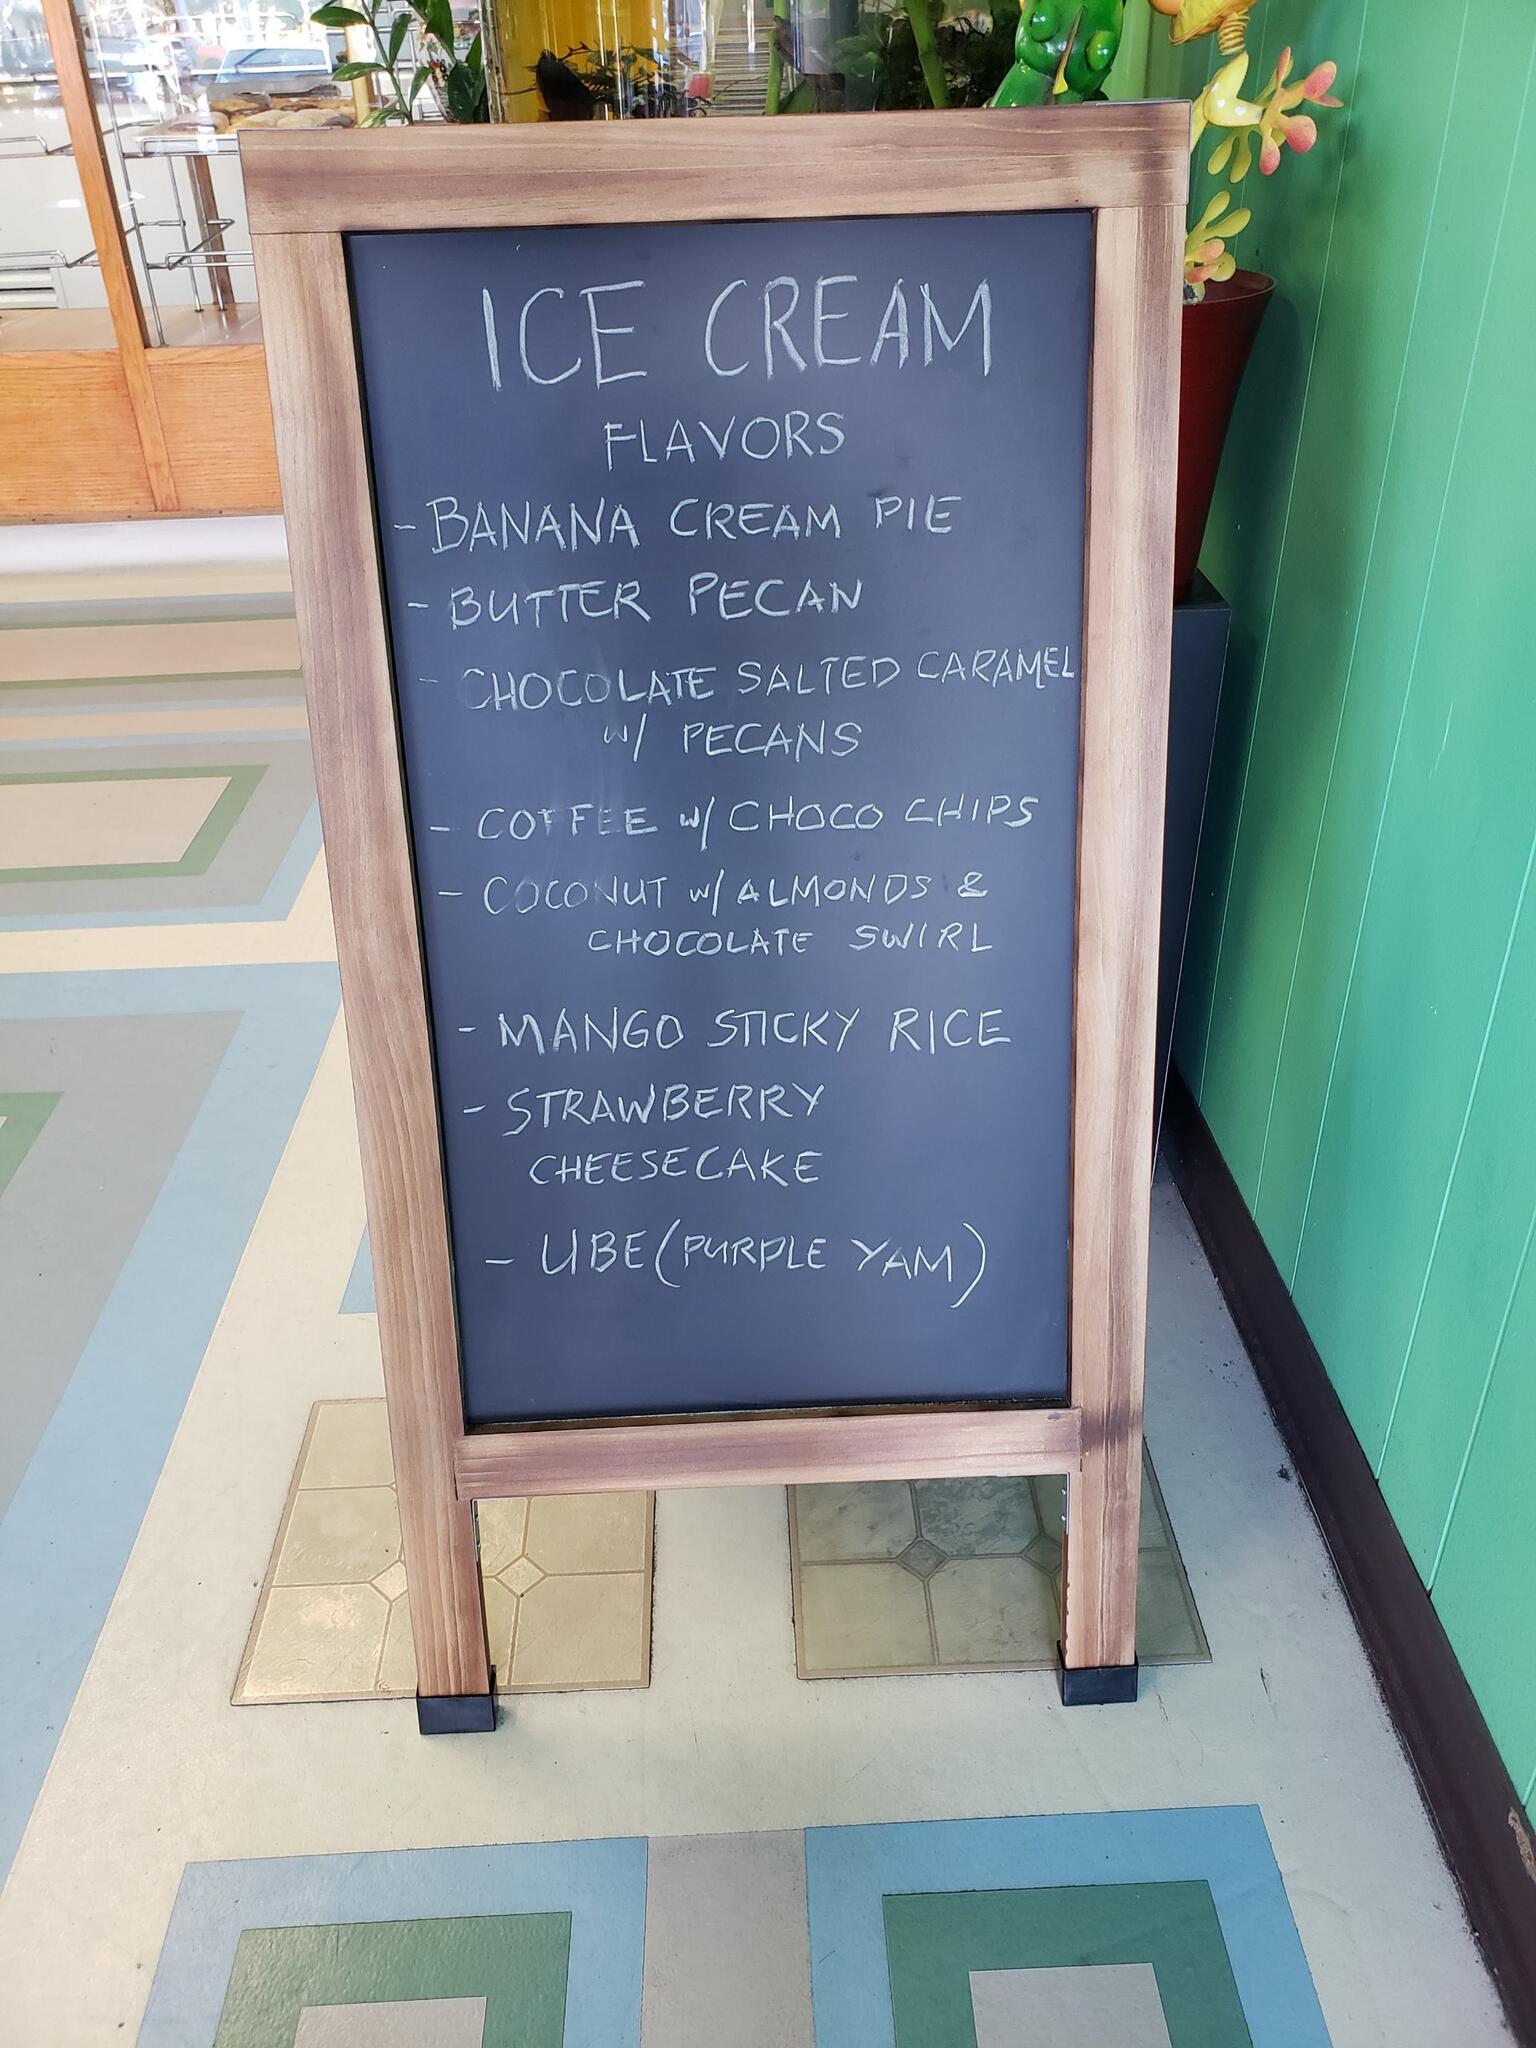 ICE CREAM
FLAVORS
- BANANA CREAM PIE
- BUTTER PECAN
- CHOCOLATE SALTED CARAMEL
w/ PECANS
- COFFEE w/ CHOCO CHIPS
- COCONUT w/ ALMONDS &
CHOCOLATE SWIRL
- MANGO STICKY RICE
- STRAWBERRY
CHEESECAKE
- UBE (PURPLE YAM)